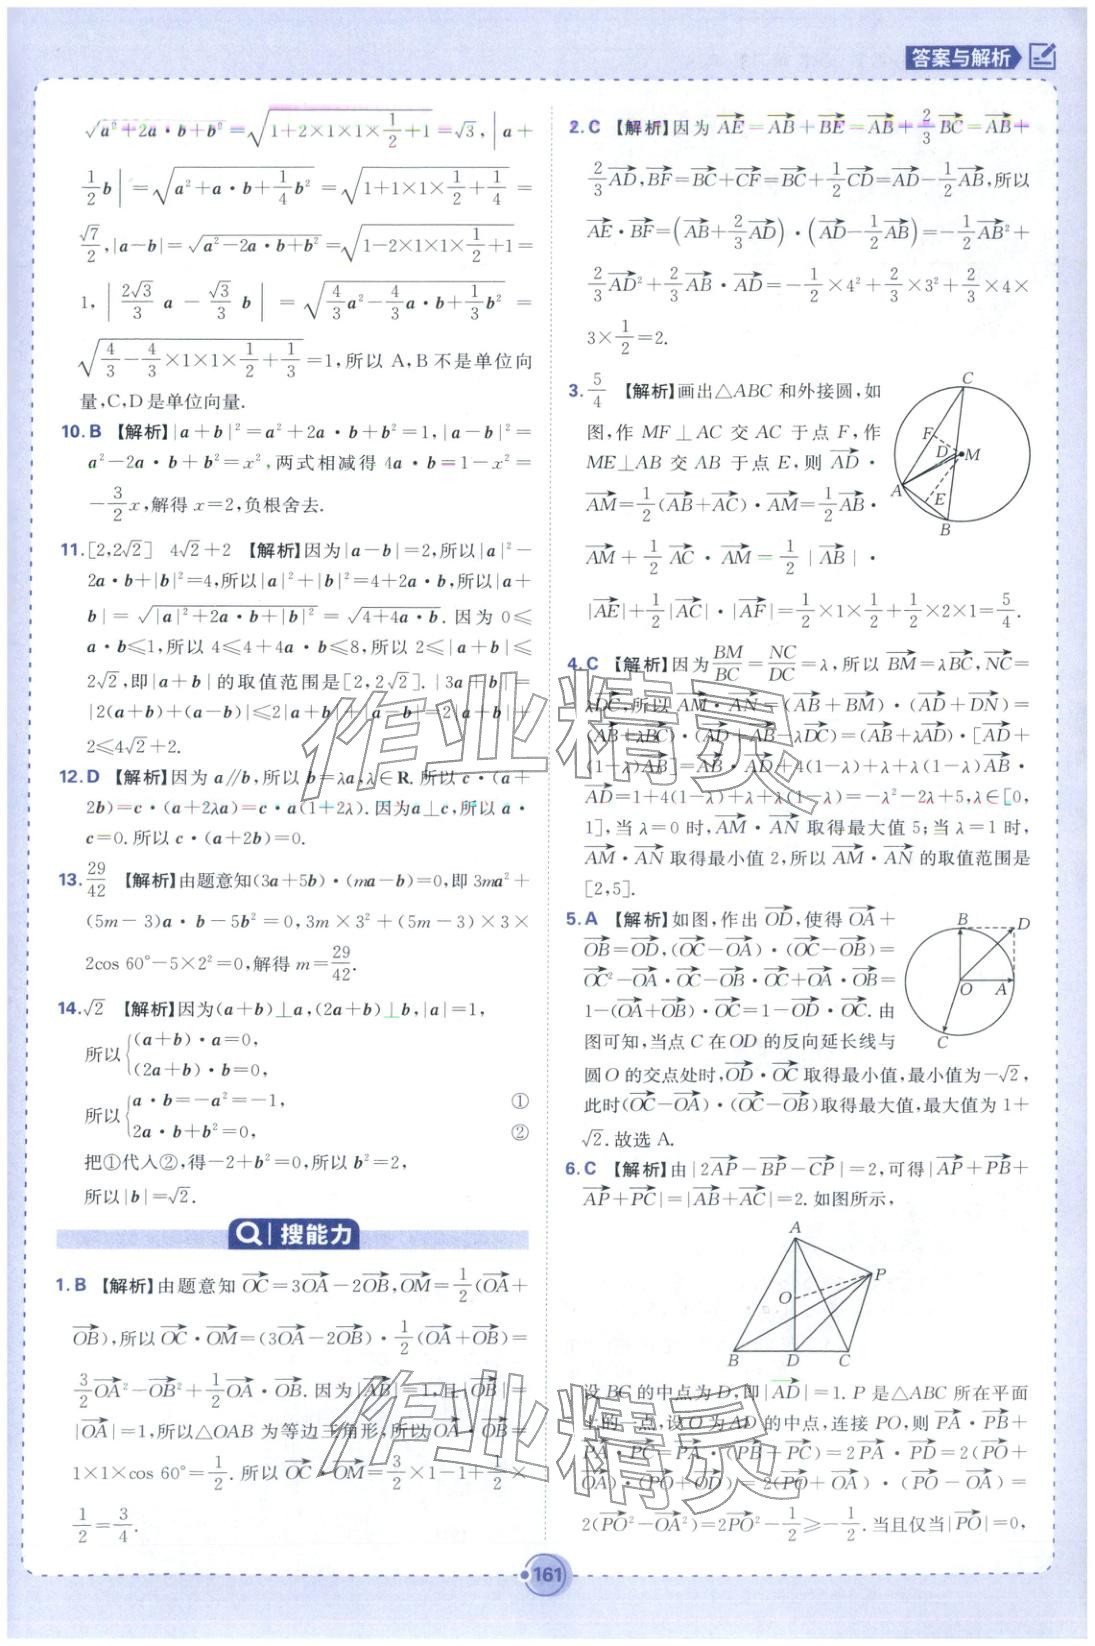 答案与解析
√(a²+2a·b+b²)=√(1+2×1×1×1/2+1)=√3,|a+
1/2 b|=√(a²+a·b+1/4 b²)=√(1+1×1×1/2+1/4)=
√7/2,|a−b|=√(a²−2a·b+b²)=√(1−2×1×1×1/2+1)=
1,|2√3/3 a−√3/3 b|=√(4/3 a²−4/3 a·b+1/3 b²)=
√(4/3−4/3×1×1×1/2+1/3)=1,所以 A,B 不是单位向
量,C,D 是单位向量.
10.B 【解析】|a+b|²=a²+2a·b+b²=1,|a−b|²=
a²−2a·b+b²=x²,两式相减得 4a·b=1−x²=
−3/2 x,解得 x=2,负根舍去.
11.[2,2√2] 4√2+2 【解析】因为|a−b|=2,所以|a|²−
2a·b+|b|²=4,所以|a|²+|b|²=4+2a·b,所以|a+
b|=√(|a|²+2a·b+|b|²)=√(4+4a·b).因为 0≤
a·b≤1,所以 4≤4+4a·b≤8,所以 2≤|a+b|≤
2√2,即|a+b|的取值范围是[2,2√2].|3a+b|=
|2(a+b)+(a−b)|≤2|a+b|+|a−b|=2|a+b|+
2≤4√2+2.
12.D 【解析】因为 a∥b,所以 b=λa,λ∈R.所以 c·(a+
2b)=c·(a+2λa)=c·a(1+2λ).因为a⊥c,所以 a·
c=0.所以 c·(a+2b)=0.
13.29/42 【解析】由题意知(3a+5b)·(ma−b)=0,即 3ma²+
(5m−3)a·b−5b²=0,3m×3²+(5m−3)×3×
2cos 60°−5×2²=0,解得 m=29/42.
14.√2 【解析】因为(a+b)⊥a,(2a+b)⊥b,|a|=1,
所以{(a+b)·a=0,
(2a+b)·b=0,
所以{a·b=−a²=−1, ①
2a·b+b²=0, ②
把①代入②,得−2+b²=0,所以 b²=2,
所以|b|=√2.
搜能力
1.B 【解析】由题意知 OC→=3OA→−2OB→,OM→=1/2(OA→+
OB→),所以 OC→·OM→=(3OA→−2OB→)·1/2(OA→+OB→)=
3/2 OA→²−OB→²+1/2 OA→·OB→.因为|AB→|=1,且|OB→|=
|OA→|=1,所以△OAB 为等边三角形,所以 OA→·OB→=
1×1×cos 60°=1/2.所以 OC→·OM→=3/2×1−1+1/2×
1/2=3/4.
2.C 【解析】因为 AE→=AB→+BE→=AB→+2/3 BC→=AB→+
2/3 AD→,BF→=BC→+CF→=BC→+1/2 CD→=AD→−1/2 AB→,所以
AE→·BF→=(AB→+2/3 AD→)·(AD→−1/2 AB→)=−1/2 AB→²+
2/3 AD→²+2/3 AB→·AD→=−1/2×4²+2/3×3²+2/3×4×
3×1/2=2.
3.5/4 【解析】画出△ABC 和外接圆,如
图,作 MF⊥AC 交 AC 于点 F,作
ME⊥AB 交 AB 于点 E,则 AD→·
AM→=1/2(AB→+AC→)·AM→=1/2 AB→·
AM→+1/2 AC→·AM→=1/2|AB→|·
|AE→|+1/2|AC→|·|AF→|=1/2×1×1/2+1/2×2×1=5/4.
C
F
D
M
A
E
B
4.C 【解析】因为 BM/BC=NC/DC=λ,所以 BM→=λBC→,NC→=
λDC→,所以 AM→·AN→=(AB→+BM→)·(AD→+DN→)=
(AB→+λBC→)·(AD→+AB→−λDC→)=(AB→+λAD→)·[AD→+
(1−λ)AB→]=AB→·AD→+4(1−λ)+λ+λ(1−λ)AB→·
AD→=1+4(1−λ)+λ+λ(1−λ)=−λ²−2λ+5,λ∈[0,
1],当 λ=0 时,AM→·AN→取得最大值 5;当 λ=1 时,
AM→·AN→取得最小值 2,所以 AM→·AN→的取值范围是
[2,5].
5.A 【解析】如图,作出 OD→,使得 OA→+
OB→=OD→,(OC→−OA→)·(OC→−OB→)=
OC→²−OA→·OC→−OB→·OC→+OA→·OB→=
1−(OA→+OB→)·OC→=1−OD→·OC→.由
图可知,当点 C 在 OD 的反向延长线与
圆 O 的交点处时,OD→·OC→取得最小值,最小值为−√2,
此时(OC→−OA→)·(OC→−OB→)取得最大值,最大值为 1+
√2.故选 A.
B
D
O
A
C
6.C 【解析】由|2AP→−BP→−CP→|=2,可得|AP→+PB→+
AP→+PC→|=|AB→+AC→|=2.如图所示,
A
P
O
B D C
设 BC 的中点为 D,即|AD→|=1.P 是△ABC 所在平面
上的一点,设 O 为 AD 的中点,连接 PO,则 PA→·PB→+
PA→·PC→=PA→·(PB→+PC→)=2PA→·PD→=2(PO→+
OA→)·(PO→+OD→)=2(PO→+OA→)·(PO→−OA→)=
2(PO→²−OA→²)=2PO→²−1/2≥−1/2.当且仅当|PO→|=0,
161
作业精灵
作业精灵